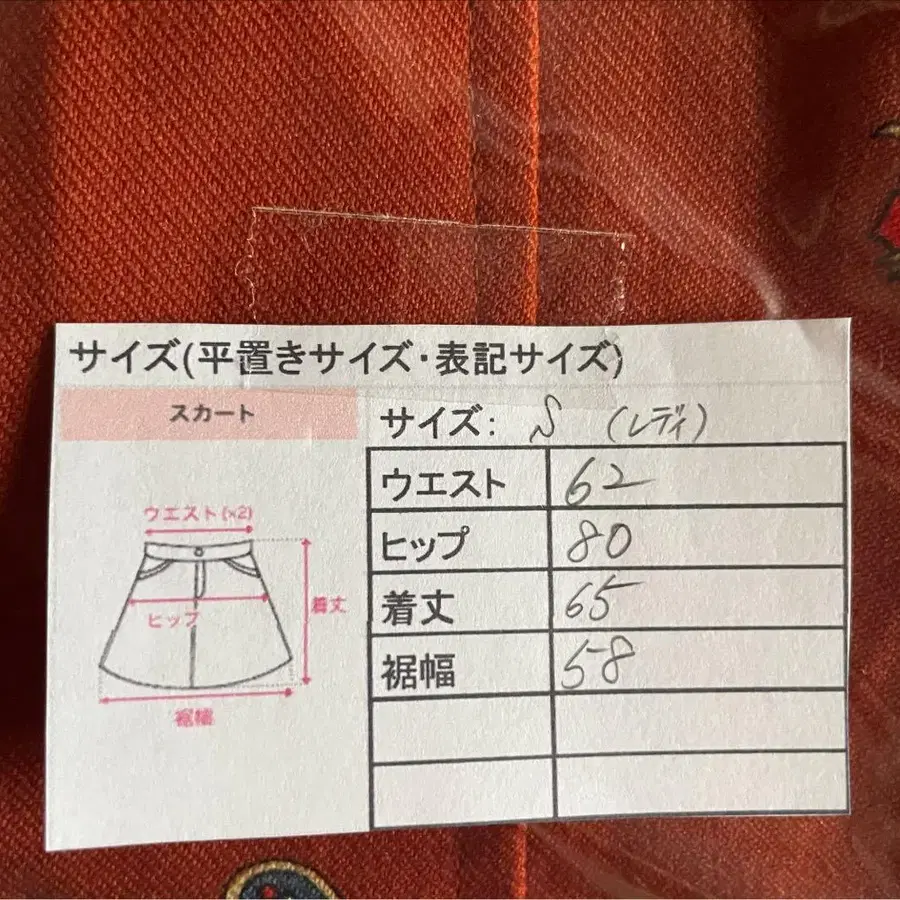 サイズ(平置きサイズ・表記サイズ)
スカート
サイズ: S (レディ)
ウエスト(×2)
ヒップ
着丈
裾幅
ウエスト 62
ヒップ 80
着丈 65
裾幅 58